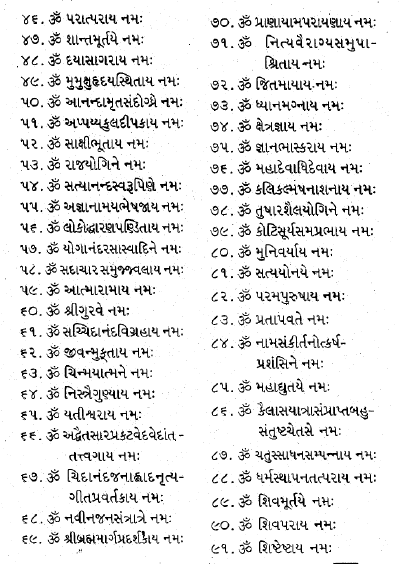 ૪૬. ૐ પરાત્પરાય નમઃ
૪૭. ૐ શાન્તમૂર્તયે નમઃ
૪૮. ૐ દયાસાગરાય નમઃ
૪૯. ૐ મુમુક્ષુહૃદયસ્થિતાય નમઃ
૫૦. ૐ આનન્દામૃતસંદોગ્ધ્રે નમઃ
૫૧. ૐ અપ્પય્યકુલદીપકાય નમઃ
૫૨. ૐ સાક્ષીભૂતાય નમઃ
૫૩. ૐ રાજયોગિને નમઃ
૫૪. ૐ સત્યાનન્દસ્વરૂપિણે નમઃ
૫૫. ૐ અજ્ઞાનામયભેષજાય નમઃ
૫૬. ૐ લોકોદ્ધારણપણ્ડિતાય નમઃ
૫૭. ૐ યોગાનંદરસાસ્વાદિને નમઃ
૫૮. ૐ સદાચારસમુજ્જવલાય નમઃ
૫૯. ૐ આત્મારામાય નમઃ
૬૦. ૐ શ્રીગુરવે નમઃ
૬૧. ૐ સચ્ચિદાનંદવિગ્રહાય નમઃ
૬૨. ૐ જીવન્મુક્તાય નમઃ
૬૩. ૐ ચિન્મયાત્મને નમઃ
૬૪. ૐ નિસ્ત્રૈગુણ્યાય નમઃ
૬૫. ૐ યતીશ્વરાય નમઃ
૬૬. ૐ અદ્વૈતસારપ્રકટવેદવેદાંત-
તત્ત્વગાય નમઃ
૬૭. ૐ ચિદાનંદજનાહ્લાદનૃત્ય-
ગીતપ્રવર્તકાય નમઃ
૬૮. ૐ નવીનજનસંત્રાત્રે નમઃ
૬૯. ૐ શ્રીબ્રહ્મમાર્ગપ્રદર્શકાય નમઃ
૭૦. ૐ પ્રાણાયામપરાયણાય નમઃ
૭૧. ૐ નિત્યવૈરાગ્યસમુપા-
શ્રિતાય નમઃ
૭૨. ૐ જિતમાયાય નમઃ
૭૩. ૐ ધ્યાનમગ્નાય નમઃ
૭૪. ૐ ક્ષેત્રજ્ઞાય નમઃ
૭૫. ૐ જ્ઞાનભાસ્કરાય નમઃ
૭૬. ૐ મહાદેવાધિદેવાય નમઃ
૭૭. ૐ કલિકલ્મષનાશનાય નમઃ
૭૮. ૐ તુષારશૈલયોગિને નમઃ
૭૯. ૐ કોટિસૂર્યસમપ્રભાય નમઃ
૮૦. ૐ મુનિવર્યાય નમઃ
૮૧. ૐ સત્યયોનયે નમઃ
૮૨. ૐ પરમપુરુષાય નમઃ
૮૩. ૐ પ્રતાપવતે નમઃ
૮૪. ૐ નામસંકીર્તનોત્કર્ષ-
પ્રશંસિને નમઃ
૮૫. ૐ મહાદ્યુતયે નમઃ
૮૬. ૐ કૈલાસયાત્રાસંપ્રાપ્તબહુ-
સંતુષ્ટચેતસે નમઃ
૮૭. ૐ ચતુસ્સાધનસમ્પન્નાય નમઃ
૮૮. ૐ ધર્મસ્થાપનતત્પરાય નમઃ
૮૯. ૐ શિવમૂર્તયે નમઃ
૯૦. ૐ શિવપરાય નમઃ
૯૧. ૐ શિષ્ટેષ્ટાય નમઃ